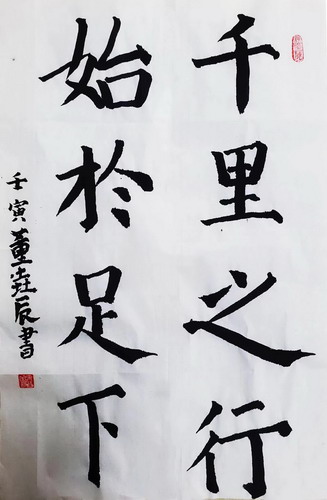 千里之行
始於足下
壬寅董垚辰書